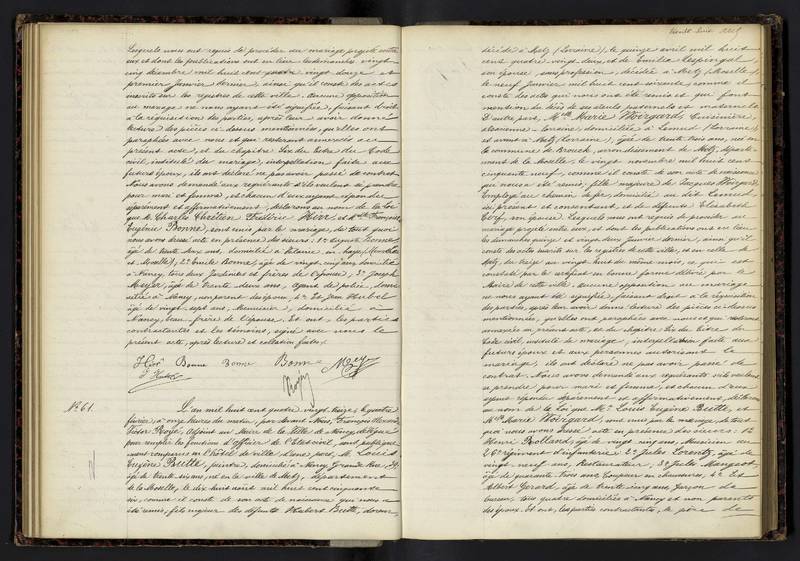 Lesquels nous ont requis de procéder au mariage projeté entre
eux et dont les publications ont eu lieu les dimanches vingt
cinq décembre mil huit cent quatre vingt douze et
premier Janvier dernier, ainsi qu'il conste des actes
inscrits sur les registres de cette ville. Aucune opposition
au mariage ne nous ayant été signifiée, faisant droit
à la réquisition des parties, après leur avoir donné
lecture des pièces ci dessus mentionnées, qu'elles ont
paraphées avec nous et qui resteront annexées au
présent acte, et du chapitre Six du titre du Code
civil, intitulé du mariage, interpellation faite aux
futurs époux, ils ont déclaré ne pas avoir passé de contrat.
Nous avons demandé aux requérants s'ils veulent se prendre
pour mari et femme; et chacun d'eux ayant répondu
séparément et affirmativement, déclarons au nom de la Loi
que M. Charles Chrétien Frédéric et Melle Françoise
Eugénie Bonne, sont unis par le mariage, de tout quoi
nous avons dressé acte en présence des sieurs: 1° Auguste Bonne
âgé de trente deux ans, domicilié à
et Moselle), 2° Emile Bonne, âgé de vingt cinq ans domicilié
à Nancy, tous deux Jardiniers et frères de l'épouse, 3° Joseph
Meyer, âgé de trente deux ans, agent de police, domi
cilié à Nancy, non parent des époux, 4° Et Jean
âgé de vingt sept ans, Menuisier, domicilié à
Nancy, beau frère de l'épouse. Et ont, les parties
contractantes et les témoins, signé avec nous le
présent acte, après lecture et collation faites.
Bonne Bonne Bonne Meyer
N° 61.
L'an mil huit cent quatre vingt treize, le quatre
février, à onze heures du matin, par devant Nous, François
Victor, Adjoint au Maire de la Ville de Nancy, délégué
pour remplir les fonctions d'officier de l'Etat civil, sont publique
ment comparus en l'hôtel de ville: d'une part, M. Louis
Eugène Butte, peintre, domicilié à Nancy, Grande Rue,
âgé de trente six ans, né en la ville de Metz, département
de la Moselle, le dix huit août mil huit cent cinquante
six, comme il conste de son acte de naissance qui nous a
été remis, fils majeur des défunts Hubert Butte,
décédé à Metz (Lorraine), le quinze avril mil huit
cent quatre vingt deux, et de Emilia Lespingal
son épouse, sans profession, décédée à Metz (Moselle)
le neuf Janvier mil huit cent soixante, comme il
conste des actes qui nous ont été remis et qui font
mention du décès de ses aïeuls paternels et maternels
D'autre part, Melle Marie Woirgard, Cuisinière,
alsacienne-lorraine, domiciliée à (Lorraine)
et avant à Metz (Lorraine), âgée de trente trois ans, née en
la commune de, arrondissement de Metz, départe
ment de la Moselle, le vingt novembre mil huit cent
cinquante neuf, comme il conste de son acte de naissance
qui nous a été remis, fille majeure de Jacques Woirgard,
Employé au chemin de fer, domicilié au dit
ici présent et consentant, et de défunte Elisabeth
son épouse. Lesquels nous ont requis de procéder au
mariage projeté entre eux, et dont les publications ont eu lieu
les dimanches quinze et vingt deux Janvier dernier, ainsi qu'il
conste des actes inscrits sur les registres de cette ville, et en celle de
Metz, du treize au vingt huit du même mois, ce qui est
constaté par le certificat en bonne forme délivré par le
Maire de cette ville. Aucune opposition au mariage
ne nous ayant été signifiée, faisant droit à la réquisition
des parties, après leur avoir donné lecture des pièces ci dessus
mentionnées, qu'elles ont paraphées avec nous et qui resteront
annexées au présent acte, et du chapitre Six du titre du
Code civil, intitulé du mariage, interpellation faite aux
futurs époux et aux personnes autorisant le
mariage, ils ont déclaré ne pas avoir passé de
contrat. Nous avons demandé aux requérants s'ils veulent
se prendre pour mari et femme, et chacun d'eux
ayant répondu séparément et affirmativement, déclarons
au nom de la Loi que M. Louis Eugène Butte et
Melle Marie Woirgard, sont unis par le mariage, de tout
quoi nous avons dressé acte en présence des sieurs: 1°
Henri Rolland, âgé de vingt cinq ans, Musicien au
26e régiment d'infanterie, 2° Jules Lorentz, âgé de
vingt neuf ans, Restaurateur, 3° Jules Mangeot,
âgé de quarante trois ans, Coupeur en chaussures, 4° Et
Albert Gerard, âgé de trente cinq ans, Garçon de
bureau, tous quatre domiciliés à Nancy et non parents
des époux. Et ont, les parties contractantes, le père de